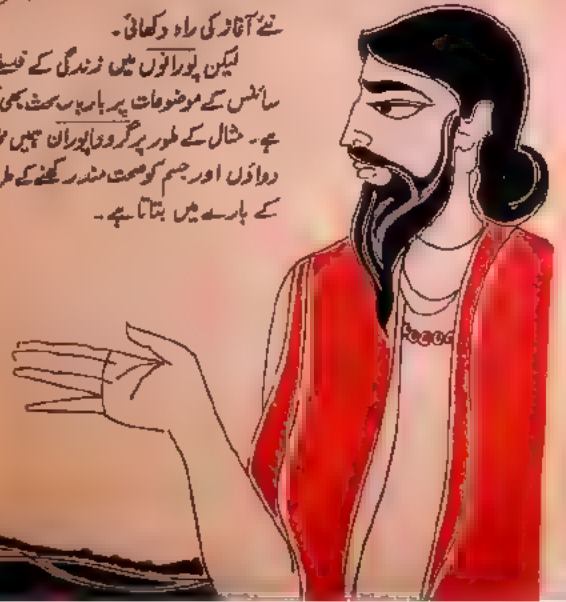 نئے آغاز کی راہ دکھائی۔
لیکن پورانوں میں زندگی کے
سائنس کے موضوعات پر بار بار بحث بھی
ہے۔ مثال کے طور پر گروڈا پوران ہمیں
دواؤں اور جسم کو صحت مند رکھنے کے
کے بارے میں بتاتا ہے۔